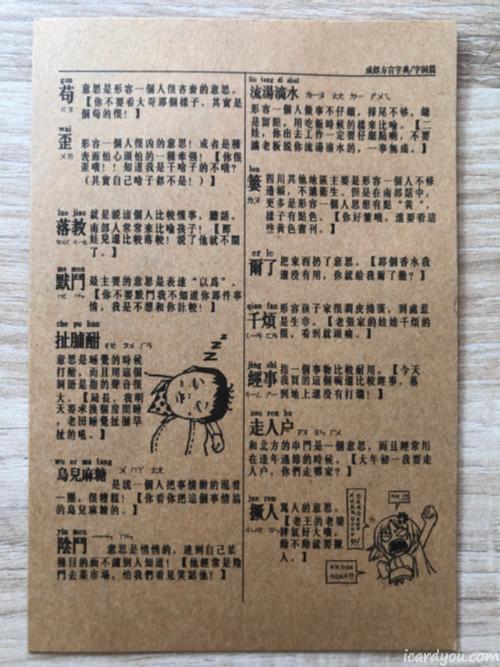 成都方言字典/字詞篇
gou
苟
ㄍㄡ
意思是形容一個人很吝嗇的意思。
【你不要看大哥那個樣子，其實是
個苟的很！】
wai
歪
ㄨㄞ
形容一個人很凶的意思！或者是種
表面怕心頭怕的一種牽强！【你很
歪哦！！知道我是干啥子的不哦？
（其實自己啥子都不是！）】
luo jiao
落教
就是説這個人比較懂事，聽話。
南部人常常來比喻孩子！【那
娃兒還比較落教！説了他就不鬧
了。】
默門
最主要的意思是表達“以爲”。
【你不要默門我不知道你那件事
情，我是不想和你計較！】
che pu han
扯脯酣
意思是睡覺的時候
打酣，而且用這個
詞語是指的聲音很
大。【局長，我明
天要求換個房間睡
，老田睡覺扯脯早
扯的吼。】
ZZZ
wu er ma tang
烏兒麻糖
ㄨ ㄦ ㄇㄚ ㄊㄤ
是説一個人把事情辦的混着
一團，很糟糕！【你看你把這個事情搞
的烏兒麻糖的。】
yin men
陰門
意思是悄悄的，達到自己某
種目的而不讓别人知道！【他經常是陰
門去菜市場，怕我們看見笑話他！】
liu tang di shui
流湯滴水
形容一個人做事不仔細，掃尾不够，總
是留點，用吃飯時候的樣來比喻。【二
娃，你出去工作一定要仔細點喲，不要
讓老板説你流湯滴水的，一事無成。】
lou
簍
ㄌㄡ
四川其他地區主要是形容一個人不修
邊幅，不講衛生。但是在南部話中，
更多是形容一個人思想有點“黄”，
樣子有點色。【你好簍哦，還要看這
些黄色書刊。】
er le
爾了
把東西扔了意思。【那個香水我
還没有用，你就給我爾了撒？】
qian fan
千煩
形容孩子家很調皮搗蛋，到處惹
是生非。【老張家的娃娃千煩的
很，看到就頭痛。】
jing shi
經事
指一個事物比較耐用。【今天
我買的這個碗還比較經事，落
到地上還没有打爛！】
zou ren hu
走人户
ㄗㄡ ㄖㄣ ㄏㄨ
和北方的串門是一個意思，而且經常用
在逢年過節的時候。【大年初一我要走
人户，你們走哪家？】
jue ren
撅人
駡人的意思。
【老王的老婆
脾氣好大哦，
動不動就要撅
人。】
icardyou.com